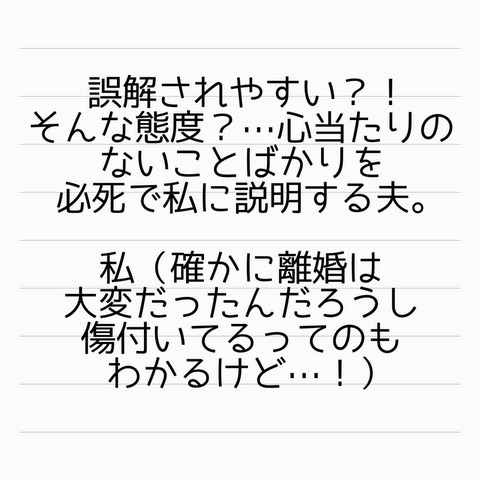 誤解されやすい？！
そんな態度？…心当たりの
ないことばかりを
必死で私に説明する夫。
私（確かに離婚は
大変だったんだろうし
傷付いてるってのも
わかるけど…！）